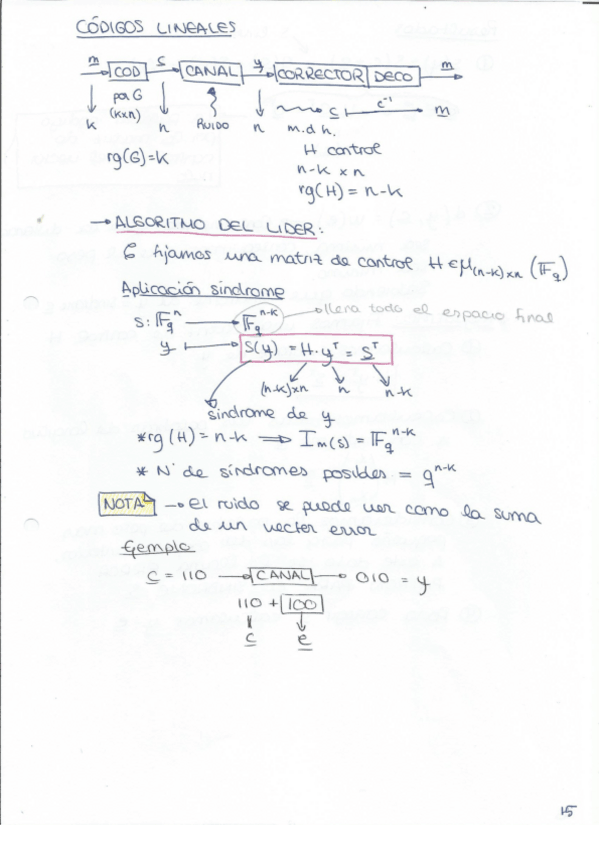 CÓDIGOS LINEALES
m → COD c → CANAL y → CORRECTOR DECO m →
por G
(k×n)
k n RUIDO n c c⁻¹ m
m.d.h.
rg(G)=k
H control
n-k × n
rg(H) = n-k
→ ALGORITMO DEL LIDER:
C fijamos una matriz de control H ∈ M(n-k)×n (𝔽q)
Aplicación síndrome
S: 𝔽qⁿ → 𝔽qⁿ⁻ᵏ → llena todo el espacio final
y ↦ S(y) = H·yᵀ = Sᵀ
(n-k)×n n n-k
síndrome de y
*rg(H) = n-k ⟹ Im(s) = 𝔽qⁿ⁻ᵏ
* Nº de síndromes posibles = qⁿ⁻ᵏ
NOTA → el ruido se puede ver como la suma
de un vector error
Ejemplo
c = 110 → CANAL → 010 = y
110 + 100
c e
15